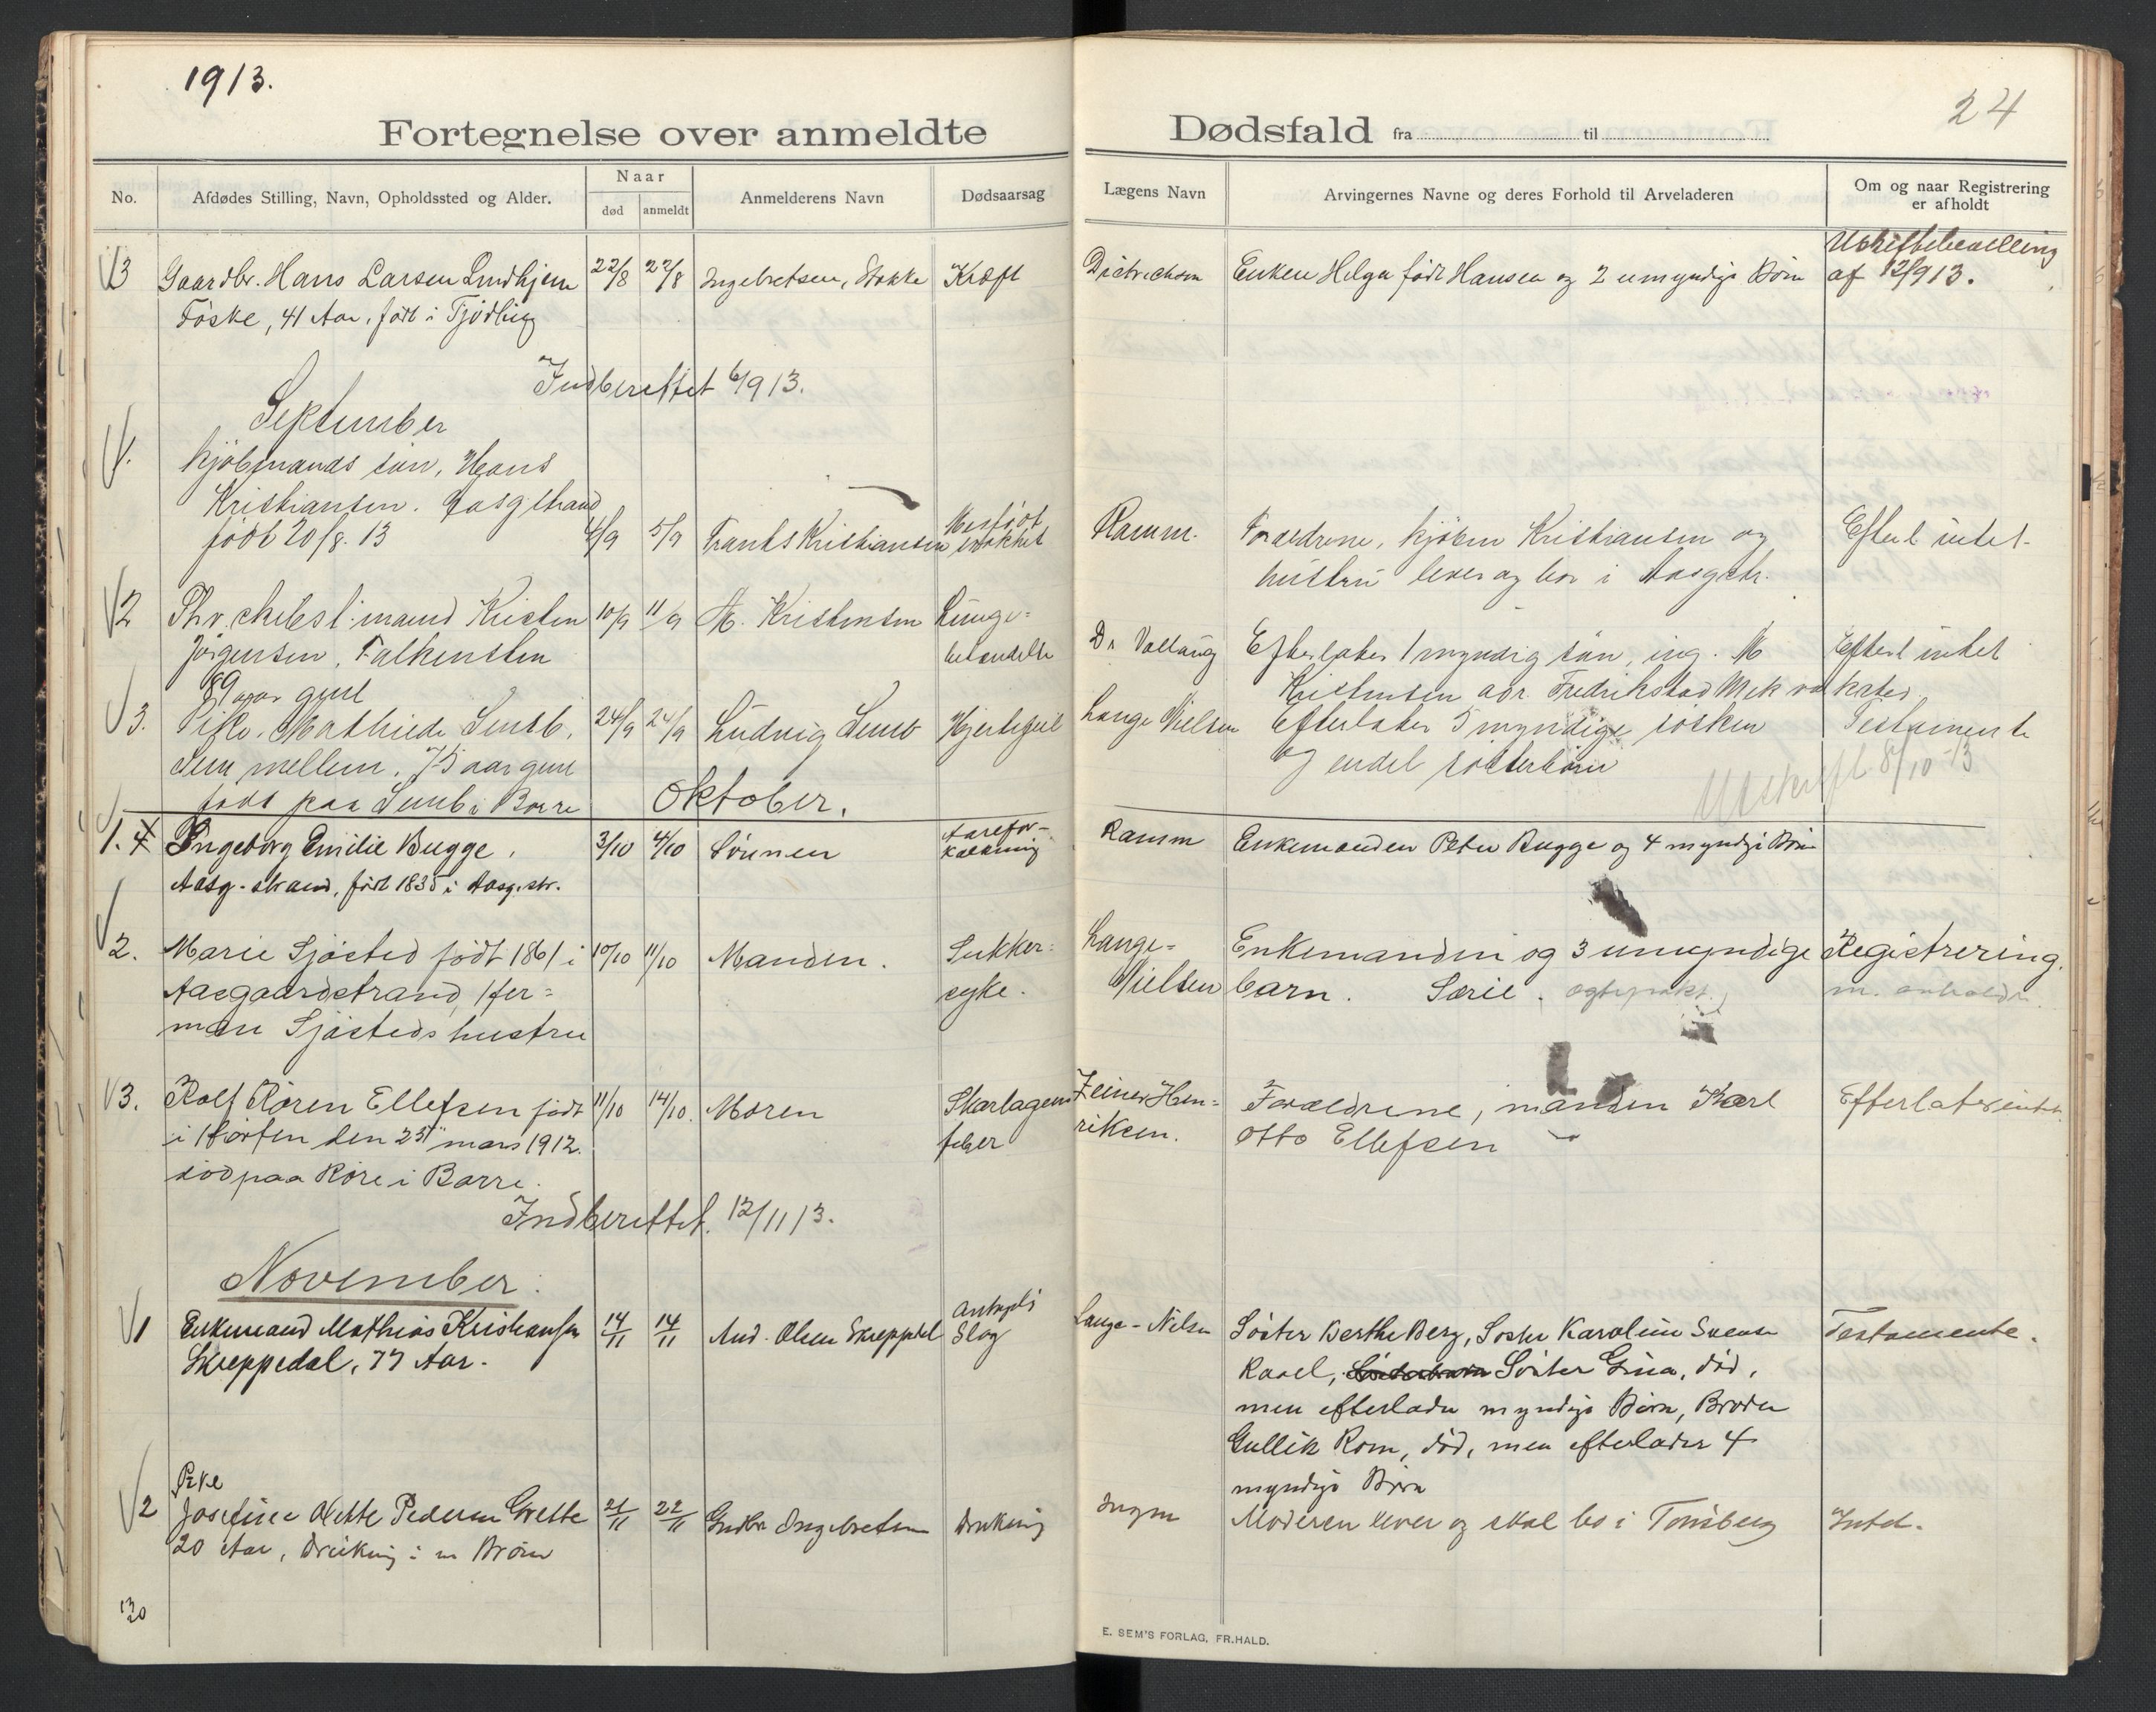 1913.
24
Fortegnelse over anmeldte Dødsfald fra til
No.
Afdødes Stilling, Navn, Opholdssted og Alder.
Naar
død
anmeldt
Anmelderens Navn
Dødsaarsag
Lægens Navn
Arvingernes Navne og deres Forhold til Arveladeren
Om og naar Registrering
er afholdt
3 Gaardbr. Hans Larsen Lindhjem 22/8 27/8 Ingebretsen, Stokke Kræft Enken Helga født Hansen og 2 umyndige Børn Uskiftebevilling
Føske, 41 Aar, født i Tjødling af 12/9 13.
Indberettet 6/9 13.
September
1. Kjøbmands søn, Hans
Kristiansen. Aasgstrand
født 20/8. 13 4/9 5/9 Frants Kristiansen Ramm. Forældrene, kjøbm Kristiansen og Efterl intet.
hustru lever og bor i Aasgstr.
2 mand Kristen 10/9 11/9 M. Kristensen Lunge=
Jørgensen, Falkensten betændelse Dr Vollaug Efterlater 1 myndig søn, ing. M Efterl intet
89 aar gml Kristensen adr. Fredrikstad Mek
3. Pike. Mathilde Semb, 24/9 24/9 Ludvig Semb Hjertefeil Lange Nielsen Efterlater 5 myndige søsken Testamente
Sem mellem. 75 aar gml og endel søsterbørn
født paa Semb i Borre Utskrift 8/10-13
Oktober.
1. 4 Ingeborg Emilie Bugge, 3/10 4/10 Sønnen Aarefor-
kalkning Ramm Enkemanden Peter Bugge og 4 myndige Børn
Aasg-strand, født 1835 i Aasg.str.
2. Marie Sjøsted født 1861 i 10/10 11/10 Manden. Sukker= Lange= Enkemanden og 3 umyndige Registrering.
Aasgaardstrand, fer= syke. Nielsen barn. Særie. ægtepakt.
man Sjøsteds hustru
3. Rolf Røren Ellefsen født 11/10 14/10. Moren Skarlagens Zeiner Hen= Forældrene, manden Karl Efterlater intet
i Horten den 23" mars 1912. feber riksen. Otto Ellefsen
død paa Røre i Borre.
Indberettet. 12/11 13.
November.
1 Enkemand Mathias Kristiansen 14/11 14/11 And. Olsen Skreppedal Slag Lange-Nilsen Søster Berthe Berg, Søster Karoline Svense Testamente.
Skreppedal, 77 Aar. Søster Gina, død,
men efterlader myndige Børn, Broder
Gullik Rom, død, men efterlader 4
myndige Børn
Pike
2 Josefine Nette Pedersen Grette 21/11 22/11 Gudbr Ingebretsen Drukning Ingen Moderen lever og skal bo i Tønsberg Intet.
20 Aar, drukning i en Brønn
13/20
E. SEM'S FORLAG, FR.HALD.